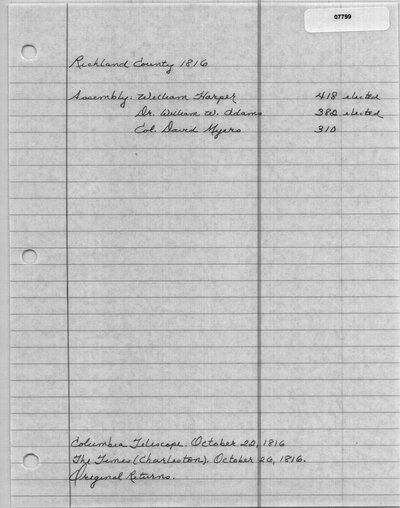 07799
Richland County 1816
Assembly: William Harper 418 elected
Dr. William W. Adams 380 elected
Col. David Myers 310
Columbia Telescope. October 22, 1816
The Times (Charleston). October 26, 1816.
Original Returns.